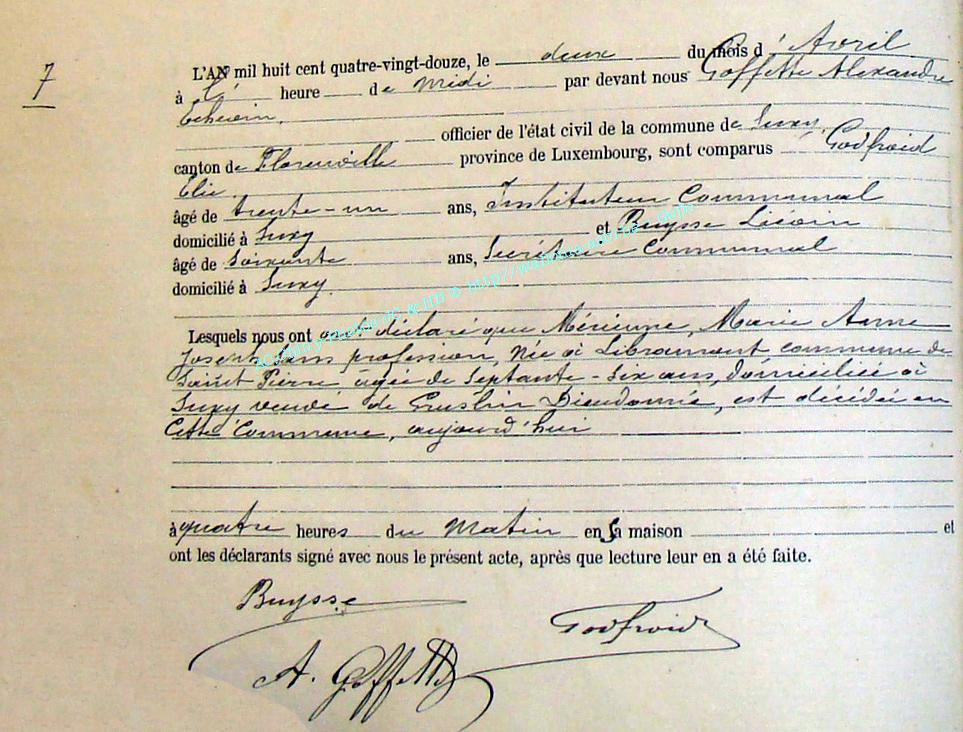 7
L'AN mil huit cent quatre-vingt-douze, le deux du mois d'Avril
à l' heure de midi par devant nous Goffette Alexandre
Echevin,
officier de l'état civil de la commune de Suxy,
canton de Florenville province de Luxembourg, sont comparus Godfroid
Elie,
âgé de trente-un ans, Instituteur Communal
domicilié à Suxy et Buysse Liévin
âgé de soixante ans, Secrétaire Communal
domicilié à Suxy.
Lesquels nous ont déclaré que Mérienne, Marie Anne
Joseph, sans profession, née à Libramont commune de
Saint Pierre âgée de Septante-six ans, domiciliée à
Suxy veuve de Dieudonné, est décédée en
Cette Commune, aujourd'hui
à quatre heures du matin en sa maison et
ont les déclarants signé avec nous le présent acte, après que lecture leur en a été faite.
Buysse
Godfroid
A. Goffette